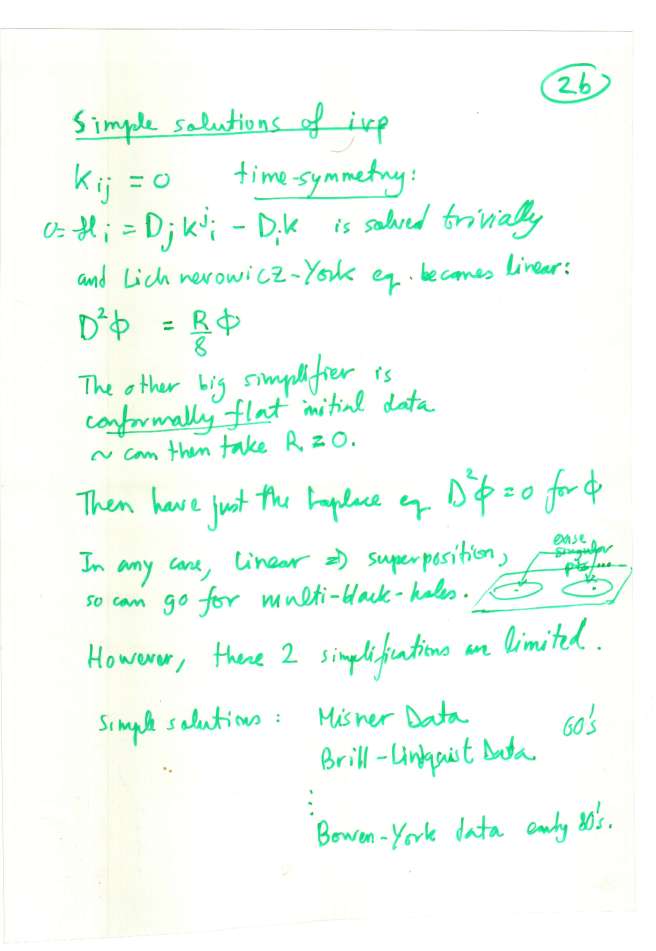 26
Simple solutions of ivp
Kij = 0 time-symmetry:
0 = ℋi = Dj K^j i - DiK is solved trivially
and Lichnerowicz-York eq. becomes linear:
D²φ = R/8 φ
The other big simplifier is
conformally flat initial data
~ can then take R = 0.
Then have just the Laplace eq D²φ = 0 for φ
In any case, linear ⇒ superposition,
so can go for multi-black-holes.
singular
pts...
However, these 2 simplifications are limited.
Simple solutions : Misner Data 60's
Brill-Lindquist Data.
⋮
Bowen-York data early 80's.